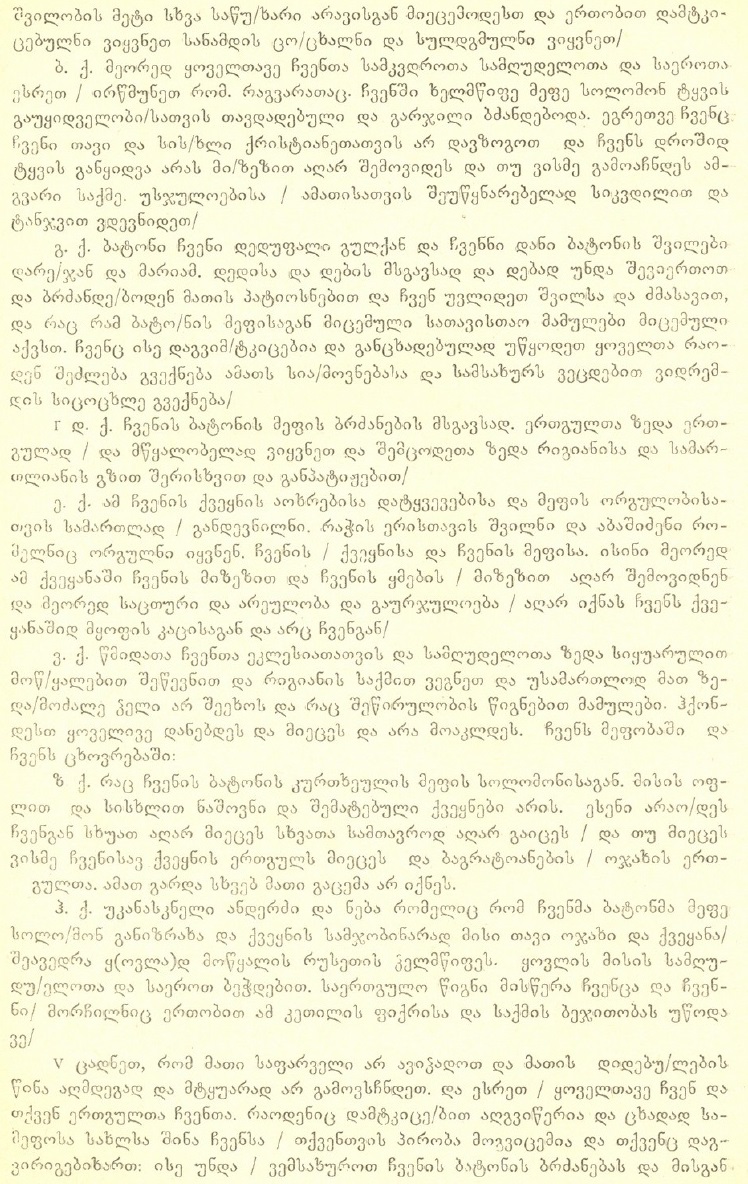 შვილობის მეტი სხვა საწუ/ხარი არავისგან მიეცემოდესთ და ერთობით დამტკი-
ცებულნი ვიყვნეთ სანამდის ცო/ცხალნი და სულდგმულნი ვიყვნეთ/
ბ. ქ. მეორედ ყოველთავე ჩვენთა სამკვდროთა სამღუდელოთა და საეროთა
ესრეთ / ირწმუნეთ რომ. რაგვარათაც. ჩვენში ხელმწიფე მეფე სოლომონ ტყვის
გაუყიდველობი/სათვის თავდადებული და გარჯილი ბძანდებოდა. ეგრეთვე ჩვენც
ჩვენი თავი და სის/ხლი ქრისტიანეთათვის არ დავზოგოთ და ჩვენს დროშიდ
ტყვის განყიდვა არას მი/ზეზით აღარ შემოვიდეს და თუ ვისმე გამოაჩნდეს ამ-
გვარი საქმე. უსჯულოებისა / ამათისათვის შეუწყნარებელად სიკვდილით და
ტანჯვით ვდევნიდეთ/
გ. ქ. ბატონი ჩვენი დედუფალი გულქან და ჩვენნი დანი ბატონის შვილები
დარე/ჯან და მარიამ. დედისა და დების მსგავსად და დებად უნდა შევიერთოთ
და ბრძანდე/ბოდენ მათის პატიოსნებით და ჩვენ უვლიდეთ შვილსა და ძმასავით,
და რაც რამ ბატო/ნის მეფისაგან მიცემული სათავისთაო მამულები მიცემული
აქვსთ. ჩვენც ისე დაგვიმ/ტკიცებია და განცხადებულად უწყოდეთ ყოველთა რაო-
დენ შეძლება გვექნება ამათს სია/მოვნებასა და სამსახურს ვეცდებით ვიდრემ-
დის სიცოცხლე გვექნება/
Γ დ. ქ. ჩვენის ბატონის მეფის ბრძანების მსგავსად. ერთგულთა ზედა ერთ-
გულად / და მწყალობელად ვიყვნეთ და შემცოდეთა ზედა რიგიანისა და სამარ-
თლიანის გზით შერისხვით და განპატიჟებით/
ე. ქ. ამ ჩვენის ქვეყნის აოხრებისა დატყვევებისა და მეფის ორგულობისა-
თვის სამართლად / განდევნილნი. რაჭის ერისთავის შვილნი და აბაშიძენი რო-
მელნიც ორგულნი იყვნენ. ჩვენის / ქვეყნისა და ჩვენის მეფისა. ისინი მეორედ
ამ ქვეყანაში ჩვენის მიზეზით და ჩვენის ყმების / მიზეზით აღარ შემოვიდნენ
და მეორედ საცთური და არეულობა და გაურჯულოება / აღარ იქნას ჩვენს ქვე-
ყანაშიდ მყოფის კაცისაგან და არც ჩვენგან/
ვ. ქ. წმიდათა ჩვენთა ეკლესიათათვის და სამღუდელოთა ზედა სიყუარულით
მოწ/ყალებით შეწევნით და რიგიანის საქმით ვეგნეთ და უსამართლოდ მათ ზე-
და/მოძალე ჴელი არ შეეხოს და რაც შეწირულობის წიგნებით მამულები. ჰქონ-
დესთ ყოველივე დანებდეს და მიეცეს და არა მოაკლდეს. ჩვენს მეფობაში და
ჩვენს ცხოვრებაში:
ზ ქ. რაც ჩვენის ბატონის კურთხეულის მეფის სოლომონისაგან. მისის ოფ-
ლით და სისხლით ნაშოვნი და შემატებული ქვეყნები არის. ესენი არაო/დეს
ჩვენგან სხუათ აღარ მიეცეს სხვათა სამთავროდ აღარ გაიცეს / და თუ მიეცეს
ვისმე ჩვენისავ ქვეყნის ერთგულს მიეცეს და ბაგრატოანების / ოჯახის ერთ-
გულთა. ამათ გარდა სხვებ მათი გაცემა არ იქნეს.
ჰ. ქ. უკანასკნელი ანდერძი და ნება რომელიც რომ ჩვენმა ბატონმა მეფე
სოლო/მონ განიზრახა და ქვეყნის სამჯობინარად მისი თავი ოჯახი და ქვეყანა/
შეავედრა ყ(ოვლა)დ მოწყალის რუსეთის ჴელმწიფეს. ყოვლის მისის სამღუ-
დუ/ელოთა და საეროთ ბეჭდებით. საერთგულო წიგნი მისწერა ჩვენცა და ჩვენ-
ნი/ მორჩილნიც ერთობით ამ კეთილის ფიქრისა და საქმის ბეჯითობას უწოდა
ვე/
V ცადნეთ, რომ მათი საფარველი არ ავიჴადოთ და მათის დიდებუ/ლების
წინა აღმდეგად და მტყუარად არ გამოვსჩნდეთ. და ესრეთ / ყოველთავე ჩვენ და
თქვენ ერთგულთა ჩვენთა. რაოდენიც დამტკიცე/ბით აღგვიწერია და ცხადად სა-
მეფოსა სახლსა შინა ჩვენსა / თქვენთვის პირობა მოგვიცემია და თქვენც დაგ-
ვირიგებიხართ: ისე უნდა / ვემსახუროთ ჩვენის ბატონის ბრძანებას და მისგან